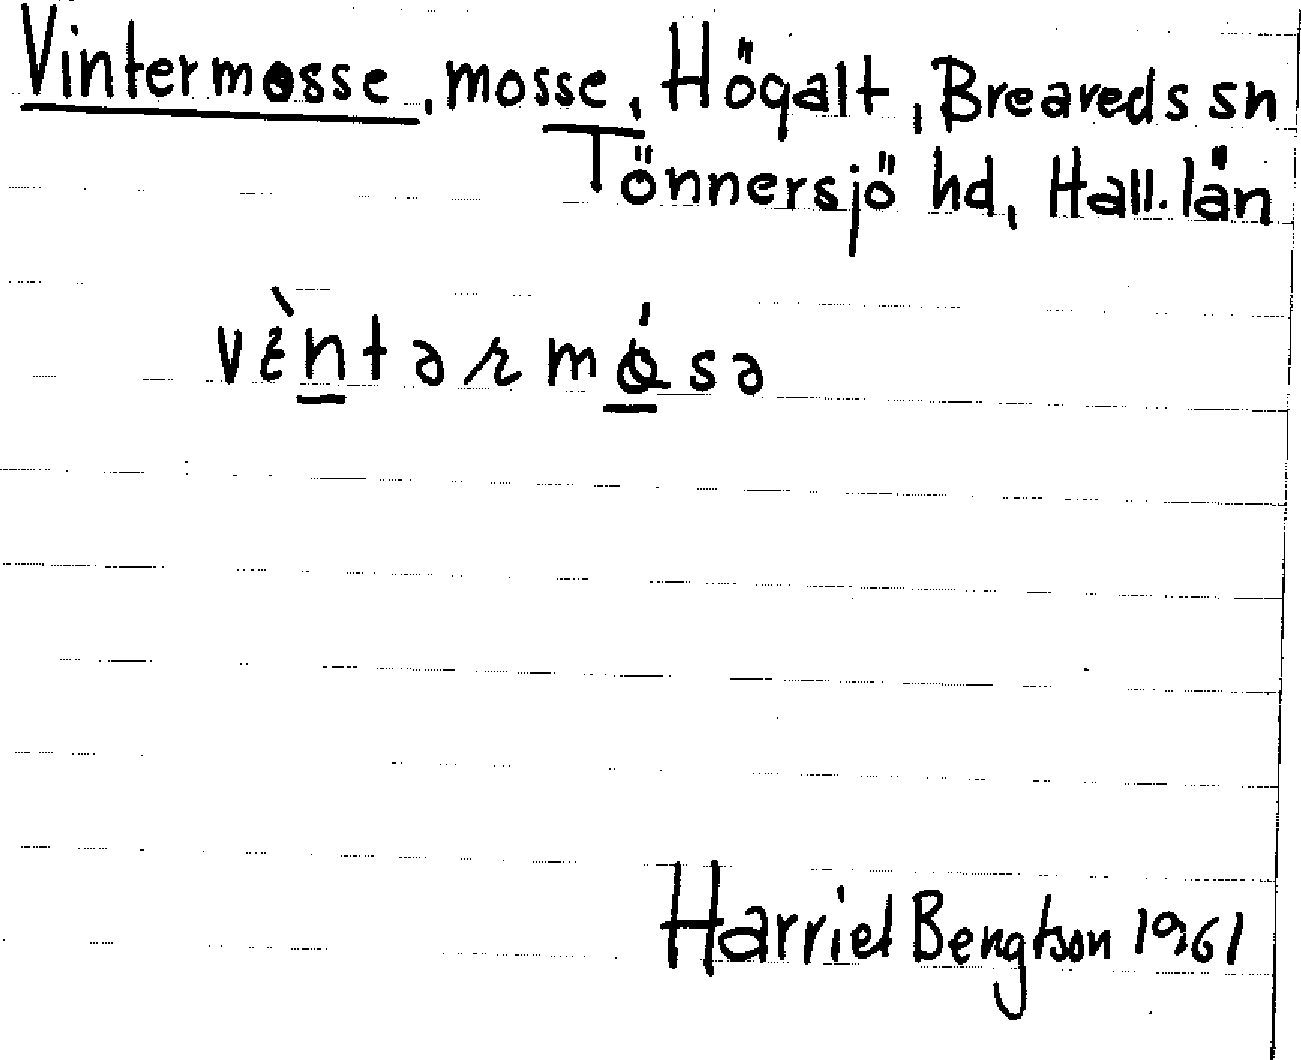 Vintermosse, mosse, Högalt, Breareds sn
Tönnersjö hd, Hall. län
vὲntərmǿsə
Harriet Bengtson 1961